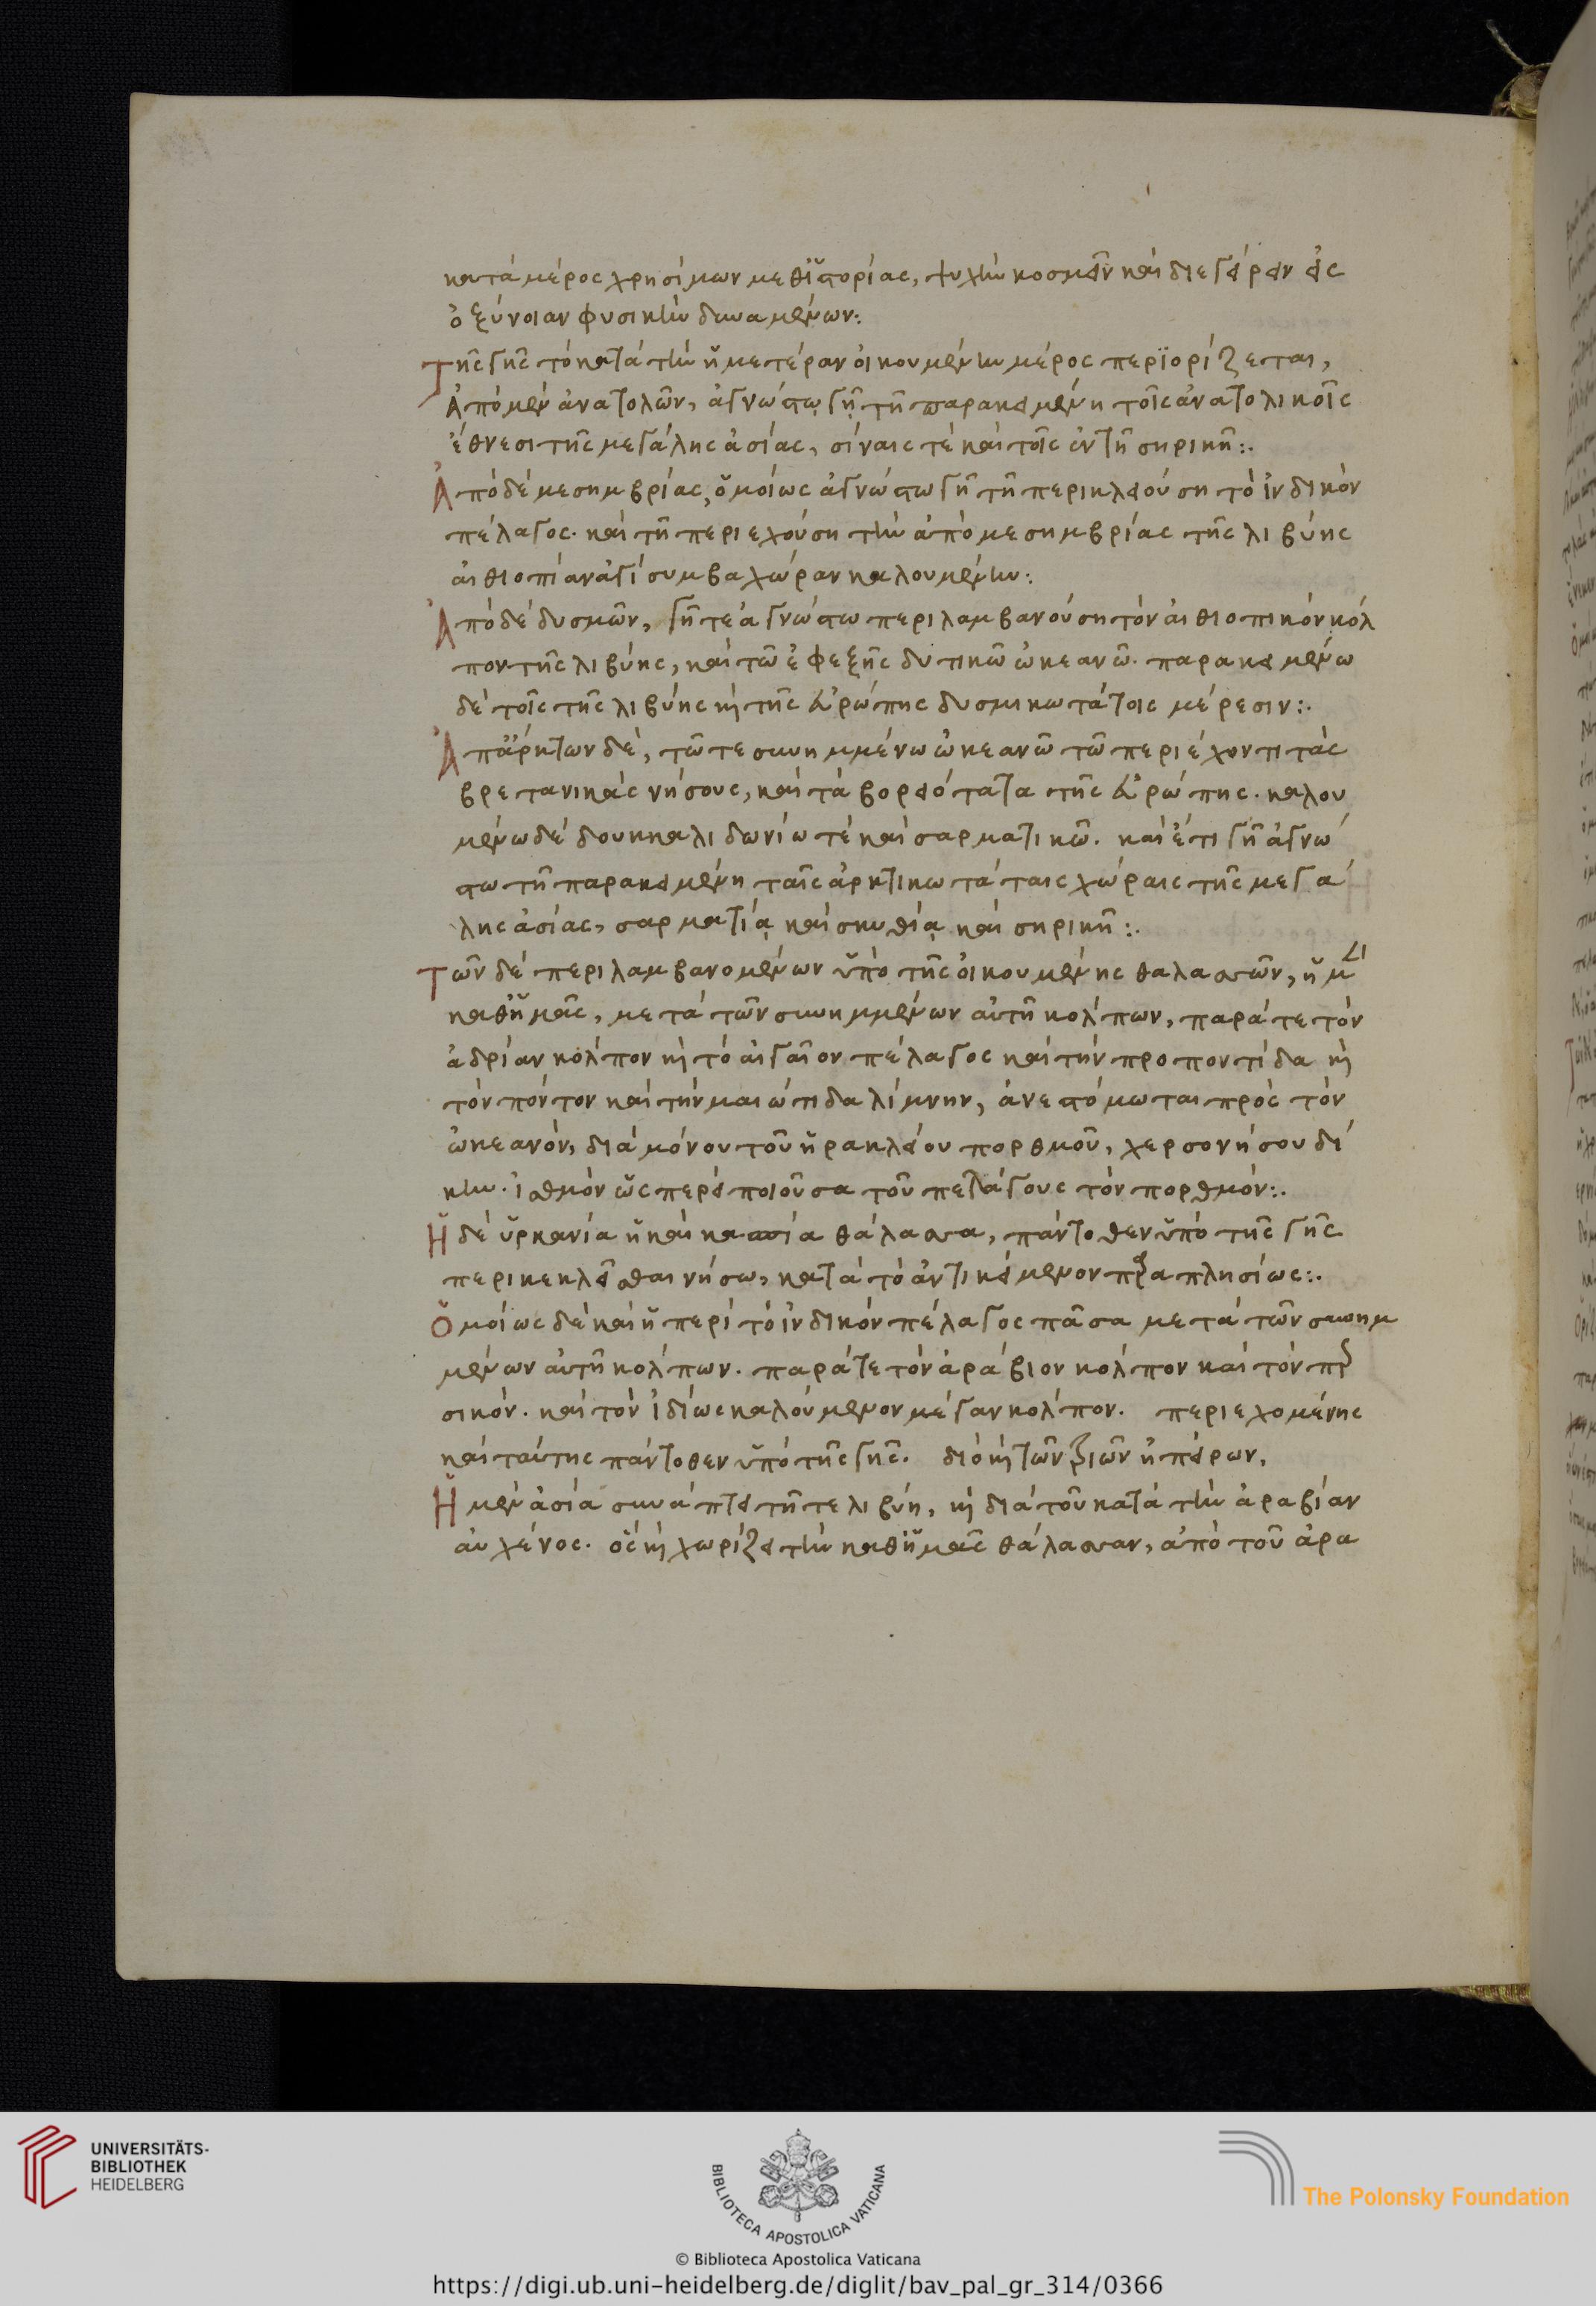 κατὰ μέρος χρησίμων μεθ' ἱστορίας, ψυχὴν κοσμεῖν καὶ διεγείρειν εἰς
ὀξύνοιαν φυσικὴν δυναμένων:
Τῆς γῆς τὸ κατὰ τὴν ἡμετέραν οἰκουμένην μέρος περϊορίζεται,
Ἀπὸ μὲν ἀνατολῶν, ἀγνώστῳ γῇ τῇ παρακειμένη τοῖς ἀνατολικοῖς
ἔθνεσι τῆς μεγάλης ἀσίας, σίναις τὲ καὶ τοῖς ἐν τῆ σηρικῆ:.
Ἀπὸ δὲ μεσημβρίας, ὁμοίως ἀγνώστω γῆ τῆ περικλειούση τὸ ἰνδικὸν
πέλαγος. καὶ τῆ περιεχούση τὴν ἀπὸ μεσημβρίας τῆς λιβύης
αἰθιοπίαν ἀγίσυμβα χώραν καλουμένην:
Ἀπὸ δὲ δυσμῶν, γῆ τε ἀγνώστω περιλαμβανούση τὸν αἰθιοπικὸν κόλ
πον τῆς λιβύης, καὶ τῶ ἐφεξῆς δυτικῶ ὠκεανῶ. παρακειμένω
δὲ τοῖς τῆς λιβύης κὶ τῆς εὐρώπης δυσμικωτάτοις μέρεσιν:.
Ἀπ' ἄρκτων δὲ, τῶ τε συνημμένω ὠκεανῶ τῶ περιέχοντι τὰς
βρετανικὰς νήσους, καὶ τὰ βορειότατα τῆς εὐρώπης. καλου
μένω δὲ δουηκαλιδωνίω τὲ καὶ σαρματικῶ. καὶ ἔτι γῆ ἀγνώ
στω τῆ παρακειμένη ταῖς ἀρκτικωτάταις χώραις τῆς μεγά
λης ἀσίας, σαρματίᾳ καὶ σκυθίᾳ καὶ σηρικῆ:.
Τῶν δὲ περιλαμβανομένων ὑπὸ τῆς οἰκουμένης θαλασσῶν, ἡ μὲν
καθ' ἡμᾶς, μετὰ τῶν συνημμένων αὐτῆ κόλπων, παρά τε τὸν
ἀδρίαν κόλπον κὶ τὸ αἰγαῖον πέλαγος καὶ τὴν προποντίδα κὶ
τὸν πόντον καὶ τὴν μαιώτιδα λίμνην, ἀνεστόμωται πρὸς τὸν
ὠκεανὸν, διὰ μόνου τοῦ ἡρακλείου πορθμοῦ, χερσονήσου δί
κην. ἰσθμὸν ὥσπερεὶ ποιοῦσα τοῦ πελάγους τὸν πορθμόν:.
Ἡ δὲ ὑρκανία ἡ καὶ κασπία θάλασσα, πάντοθεν ὑπὸ τῆς γῆς
περικεκλεῖσθαι νήσω, κατὰ τὸ ἀντικείμενον παραπλησίως:.
Ὁμοίως δὲ καὶ ἡ περὶ τὸ ἰνδικὸν πέλαγος πᾶσα μετὰ τῶν συνημ
μένων αὐτῆ κόλπων. παρά τε τὸν ἀράβιον κόλπον καὶ τὸν περ
σικόν. καὶ τὸν ἰδίως καλούμενον μέγαν κόλπον. περιεχομένης
καὶ ταύτης πάντοθεν ὑπὸ τῆς γῆς. διὸ κὶ τῶν τριῶν ἠπείρων,
Ἡ μὲν ἀσία συνάπτει τῆ τε λιβύη, κὶ διὰ τοῦ κατὰ τὴν ἀραβίαν
αὐχένος. ὃς κὶ χωρίζει τὴν καθ' ἡμᾶς θάλασσαν, ἀπὸ τοῦ ἀρα
UNIVERSITÄTS-
BIBLIOTHEK
HEIDELBERG
BIBLIOTECA APOSTOLICA VATICANA
The Polonsky Foundation
© Biblioteca Apostolica Vaticana
https://digi.ub.uni-heidelberg.de/diglit/bav_pal_gr_314/0366